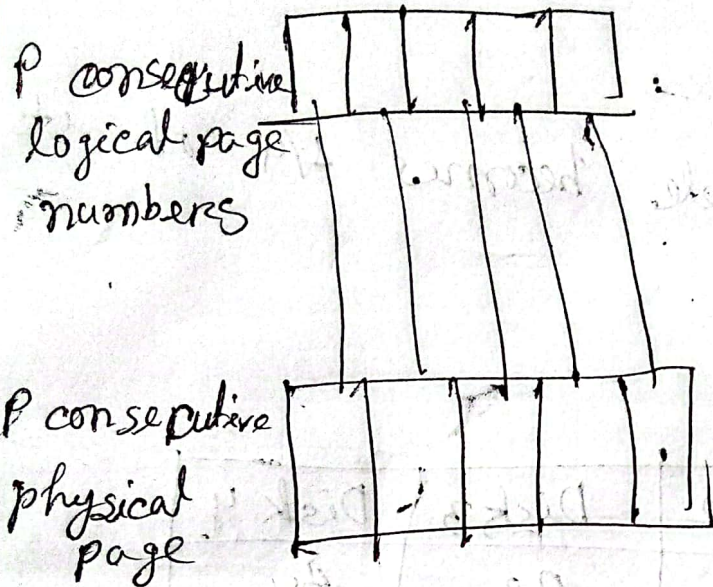 P consecutive
logical page
numbers
P consecutive
physical
page